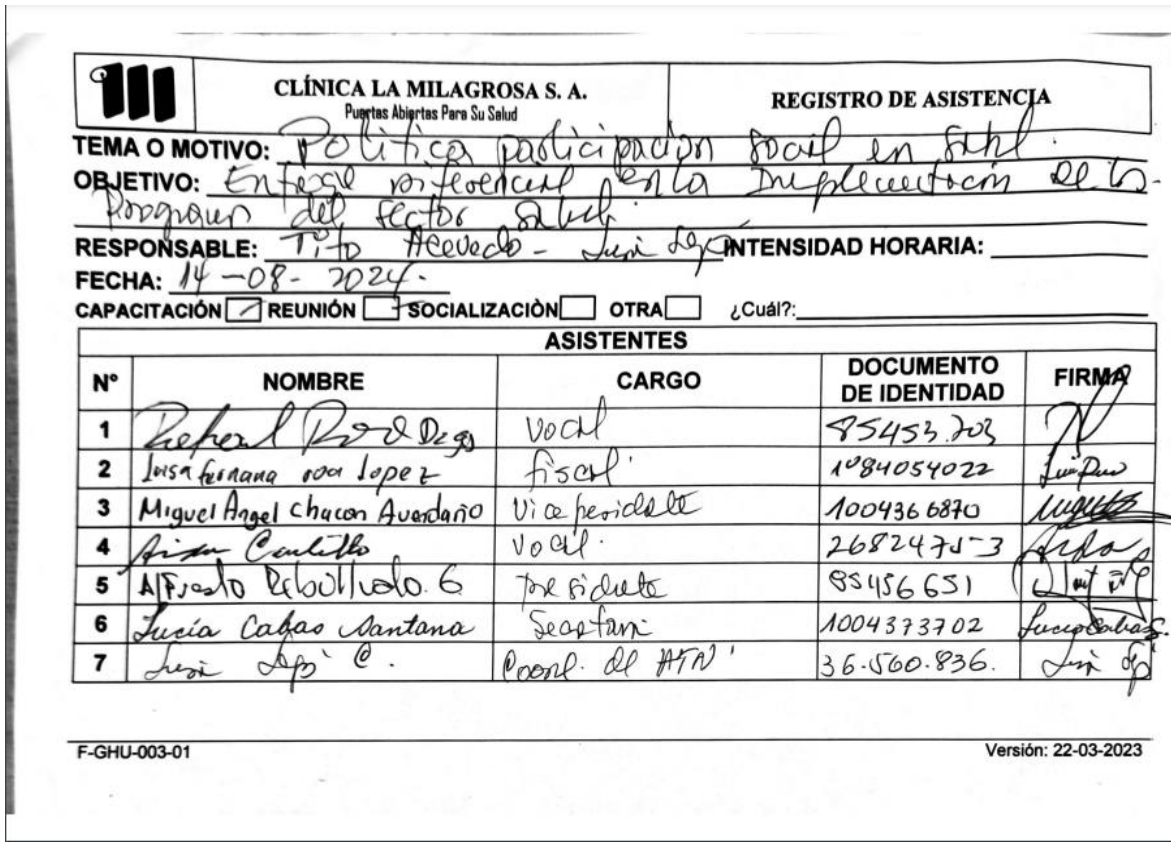 CLÍNICA LA MILAGROSA S. A.
Puertas Abiertas Para Su Salud
REGISTRO DE ASISTENCIA
TEMA O MOTIVO: Politica participacion social en
OBJETIVO: Enfoque diferencial en la Implementacion de los
Programas del sector salud.
RESPONSABLE: Tito Acevedo - INTENSIDAD HORARIA:
FECHA: 14-08-2024.
CAPACITACIÓN REUNIÓN SOCIALIZACIÒN OTRA ¿Cuál?:
ASISTENTES
Nº NOMBRE CARGO DOCUMENTO DE IDENTIDAD FIRMA
1 vocal 85453.703
2 Luisa lopez fiscal 1084054022
3 Miguel Angel Chacon Avendaño Vicepresidente 1004366870
4 vocal.
5 Alfredo presidente 85456651
6 Lucía Cabas Santana 1004373702 Lucia Cabas S.
7 36.560.836.
F-GHU-003-01
Versión: 22-03-2023